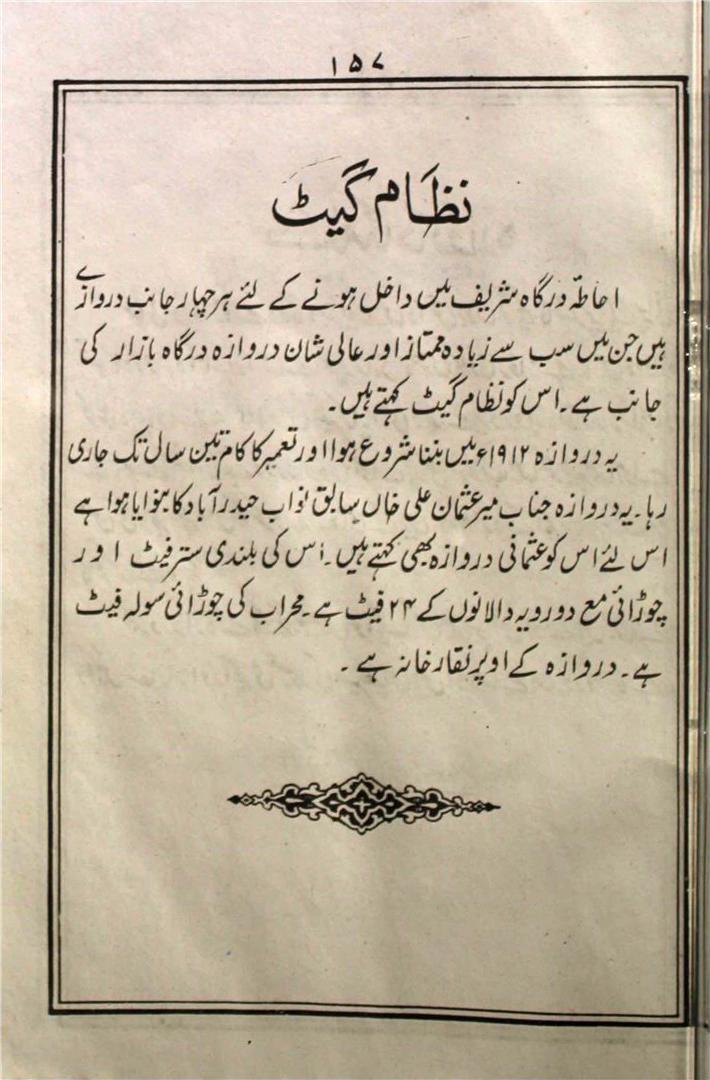 ۱۵۷
نظام گیٹ
احاطہ درگاہ شریف میں داخل ہونے کے لئے ہر چہار جانب دروازے
ہیں جن میں سب سے زیادہ ممتاز اور عالی شان دروازہ درگاہ بازار کی
جانب ہے۔ اس کو نظام گیٹ کہتے ہیں۔
یہ دروازہ ۱۹۱۲ء میں بننا شروع ہوا اور تعمیر کا کام تین سال تک جاری
رہا۔ یہ دروازہ جناب میر عثمان علی خاں سابق نواب حیدرآباد کا بنوایا ہوا ہے
اس لئے اس کو عثمانی دروازہ بھی کہتے ہیں۔ اس کی بلندی ستر فیٹ اور
چوڑائی مع دو رویہ دالانوں کے ۲۴ فیٹ ہے۔ محراب کی چوڑائی سولہ فیٹ
ہے۔ دروازہ کے اوپر نقار خانہ ہے۔